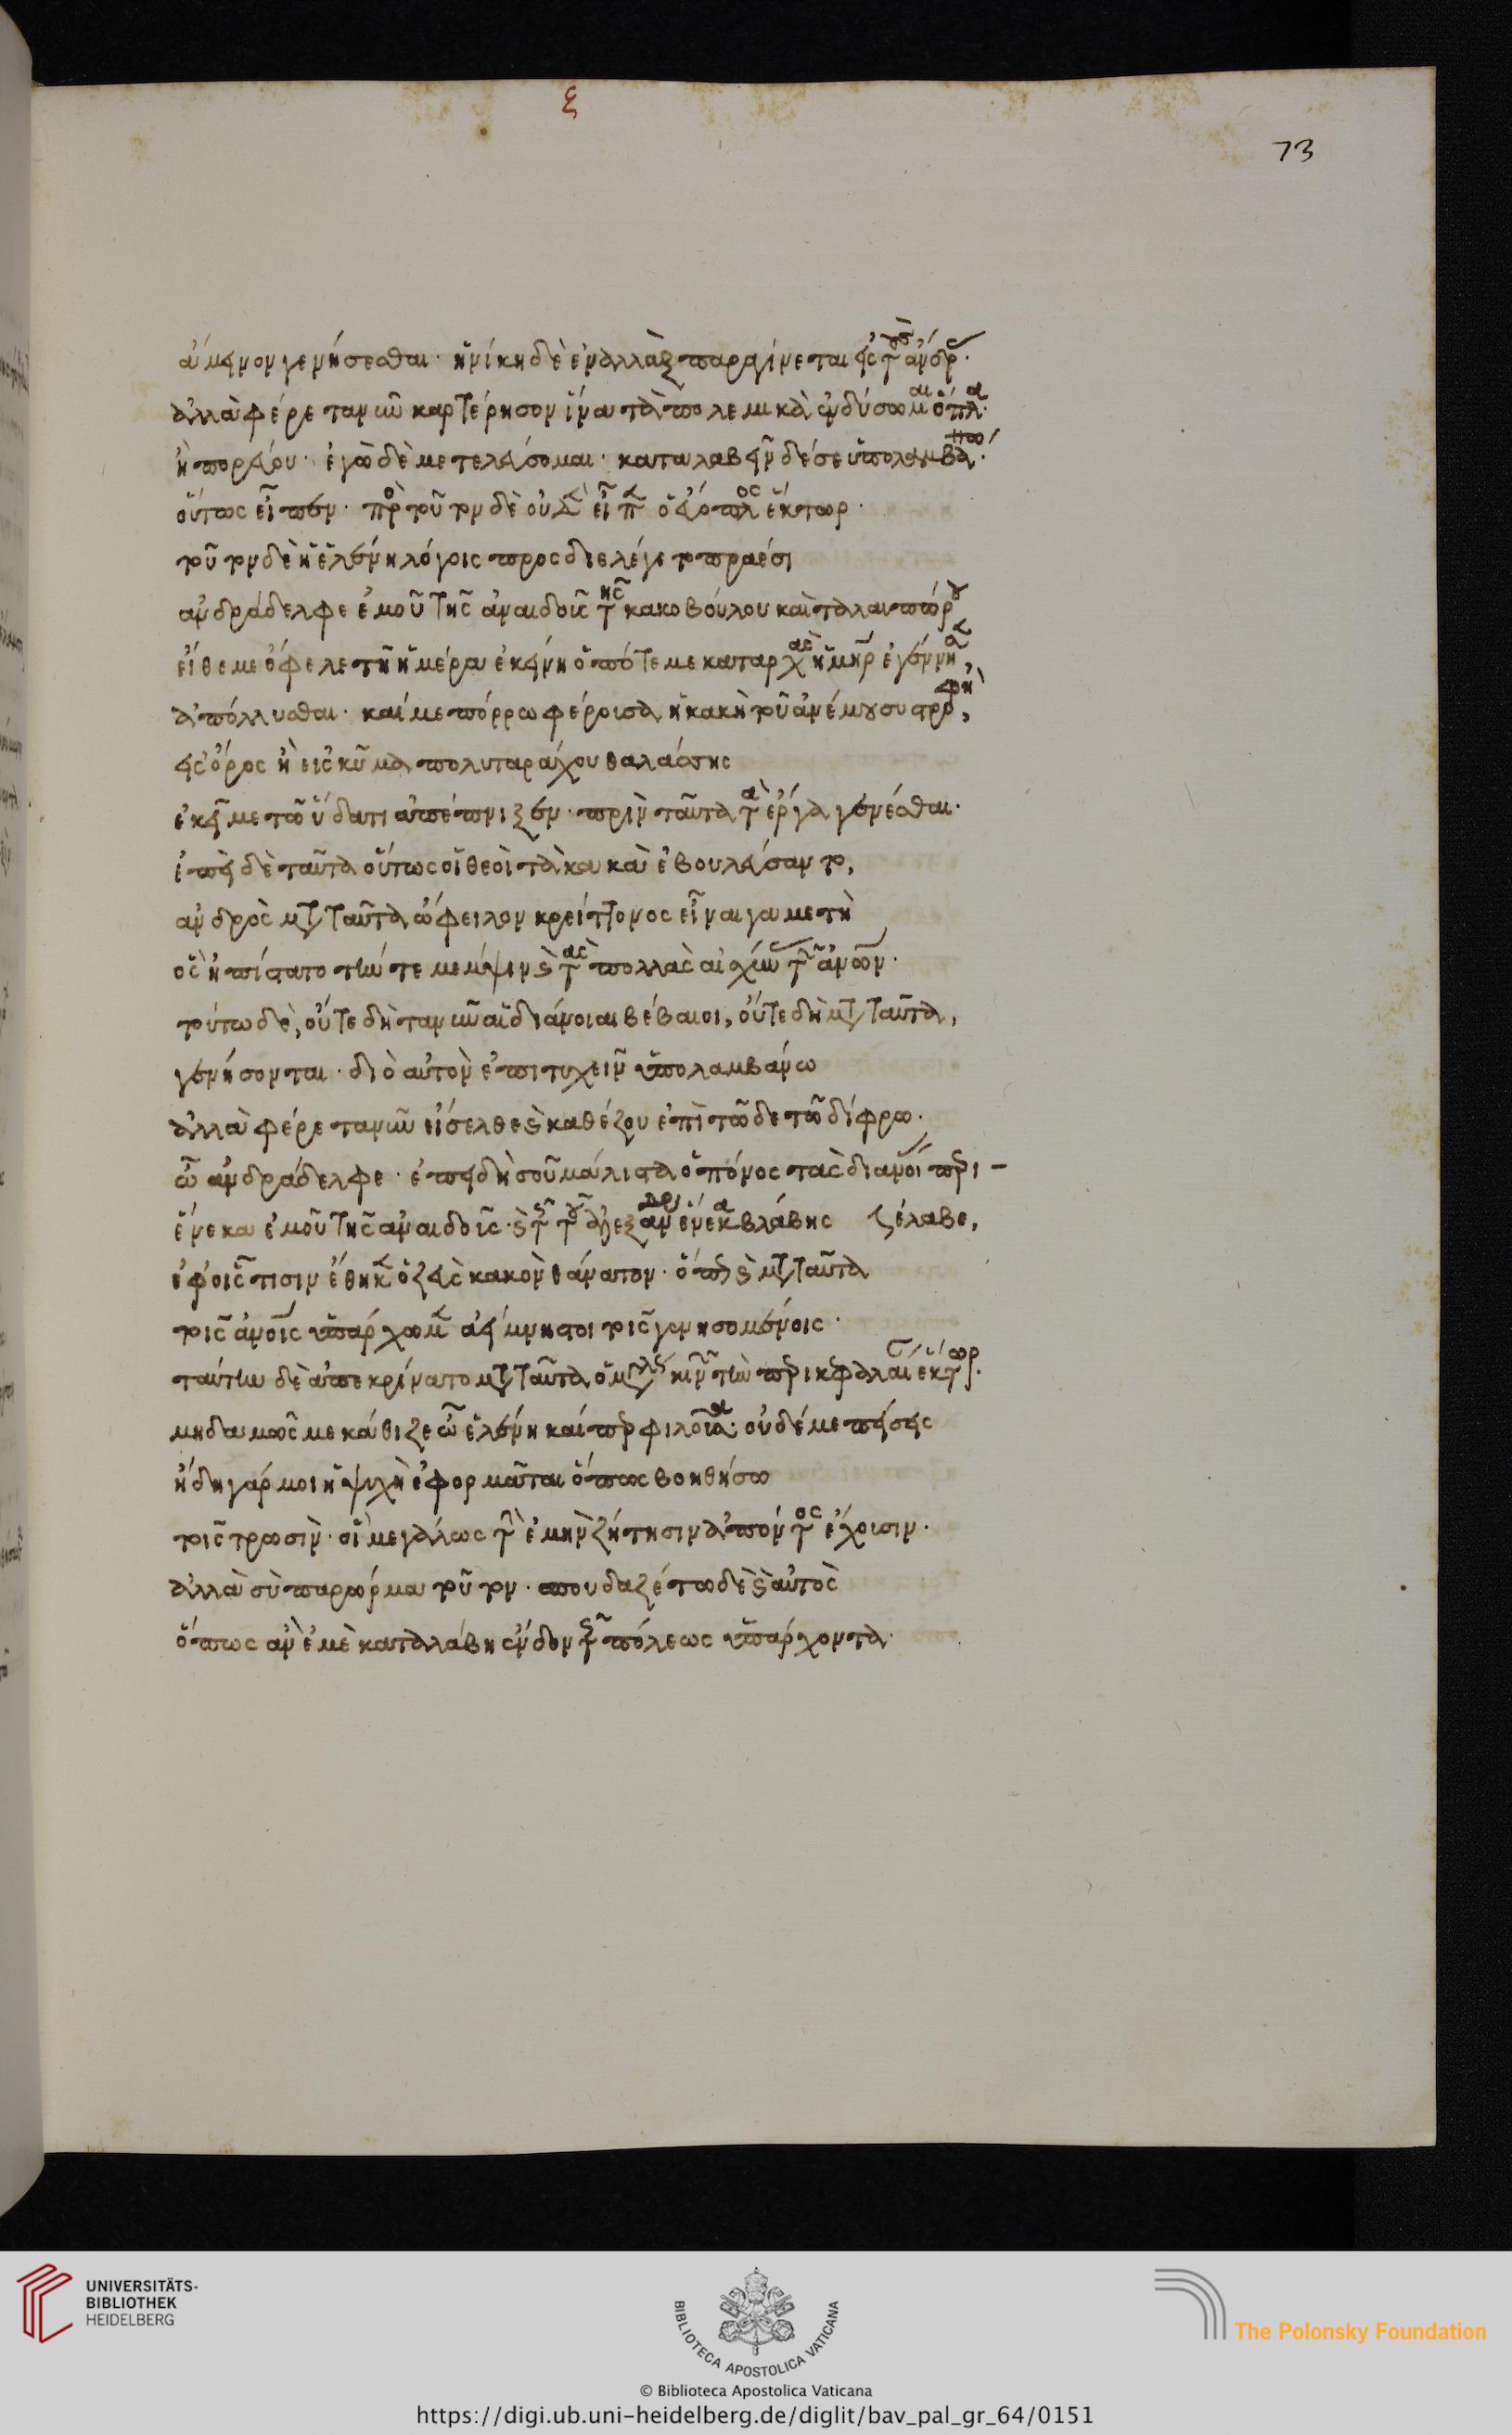 ξ
73
ἄμεινον γενήσεσθαι· ἡ νίκη δὲ ἐναλλὰξ παραγίνεται εἰς τοὺς ἄνδρας·
ἀλλὰ φέρε τανῦν καρτέρησον ἵνα τὰ πολεμικὰ ἐνδύσωμαι ὅπλα·
ἢ πορεύου· ἐγὼ δὲ μετελεύσομαι· καταλαβεῖν δέ σε ὑπολαμβάνω·
οὕτως εἶπεν· πρὸς τοῦτον δὲ οὐδὲν εἶπεν ὁ εὔοπλος ἕκτωρ·
τοῦτον δὲ ἡ ἑλένη λόγοις προσδιελέγετο πραέσι
ἀνδράδελφε ἐμοῦ τῆς ἀναιδοῦς τῆς κακοβούλου καὶ ταλαιπώρου
εἴθε με ὄφελε τῆ ἡμέρα ἐκείνη ὁπότε με καταρχὰς ἡ μήτηρ ἐγέννησεν,
ἀπόλλυσθαι· καί με πόρρω φέρουσα ἡ κακὴ τοῦ ἀνέμου συστροφὴ,
εἰς ὄρος ἢ εἰς κῦμα πολυταράχου θαλάσσης
ἐκεῖ με τῶ ὕδατι ἀπέπνιξεν· πρὶν ταῦτα τὰ ἔργα γενέσθαι·
ἐπεὶ δὲ ταῦτα οὕτως οἱ θεοὶ τὰ κακὰ ἐβουλεύσαντο,
ἀνδρὸς μετὰ ταῦτα ὤφειλον κρείττονος εἶναι γαμετὴ
ὃς ἠπίστατο τήν τε μέμψιν καὶ τὰς πολλὰς αἰσχύνας τῶν ἀνθρώπων·
τούτω δὲ, οὔτε δὴ τανῦν αἱ διάνοιαι βέβαιοι, οὔτε δὴ μετὰ ταῦτα,
γενήσονται· διὸ αὐτὸν ἐπιτυχεῖν ὑπολαμβάνω
ἀλλὰ φέρε τανῦν εἴσελθε καὶ καθέζου ἐπὶ τῶδε τῶ δίφρω·
ὦ ἀνδράδελφε· ἐπειδὴ σοῦ μάλιστα ὁ πόνος τὰς διανοίας περι-
ἕνεκα ἐμοῦ τῆς ἀναιδοῦς· καὶ τῆς τοῦ ἀλεξάνδρου ἕνεκα βλάβης έλαβε,
ἐφ' οἷς τισιν ἔθηκεν ὁ ζεὺς κακὸν θάνατον· ὅπως καὶ μετὰ ταῦτα
τοῖς ἀνθρώποις ὑπάρχωμεν ἀείμνηστοι τοῖς γενησομένοις·
ταύτην δὲ ἀπεκρίνατο μετὰ ταῦτα ὁ μεγάλως κινῶν τὴν περικεφαλαίαν ἕκτωρ·
μηδαμῶς με κάθιζε ὦ ἑλένη καίπερ φιλοῦσα· οὐδέ με πείσεις
ἤδη γάρ μοι ἡ ψυχὴ ἐφορμᾶται ὅπως βοηθήσω
τοῖς τρωσὶν· οἳ μεγάλως τὴν ἐμὴν ζήτησιν ἀπόντος ἔχουσιν·
ἀλλὰ σὺ παρώρμα τοῦτον· σπουδαζέτω δὲ καὶ αὐτὸς
ὅπως ἂν ἐμὲ καταλάβη ἔνδον τῆς πόλεως ὑπάρχοντα·
UNIVERSITÄTS-
BIBLIOTHEK
HEIDELBERG
BIBLIOTECA APOSTOLICA VATICANA
The Polonsky Foundation
© Biblioteca Apostolica Vaticana
https://digi.ub.uni-heidelberg.de/diglit/bav_pal_gr_64/0151